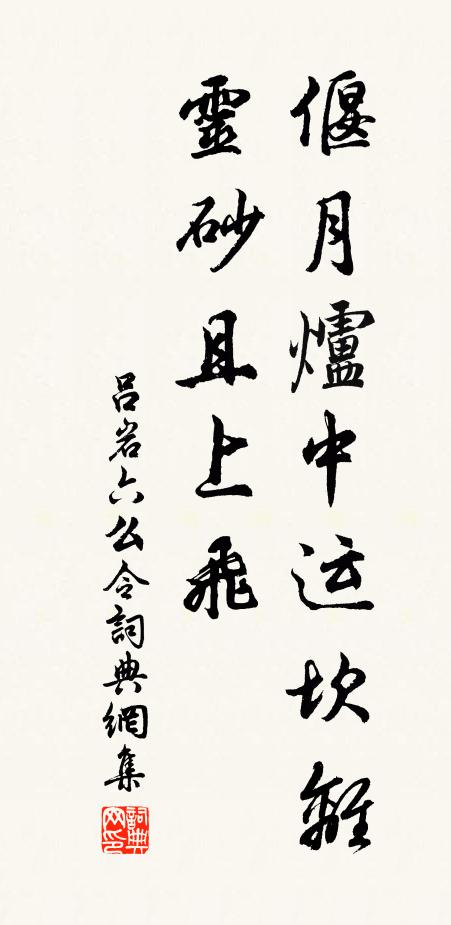 偃月爐中运坎離
靈砂且上飛
吕岩六么令詞典網集
詞典网印